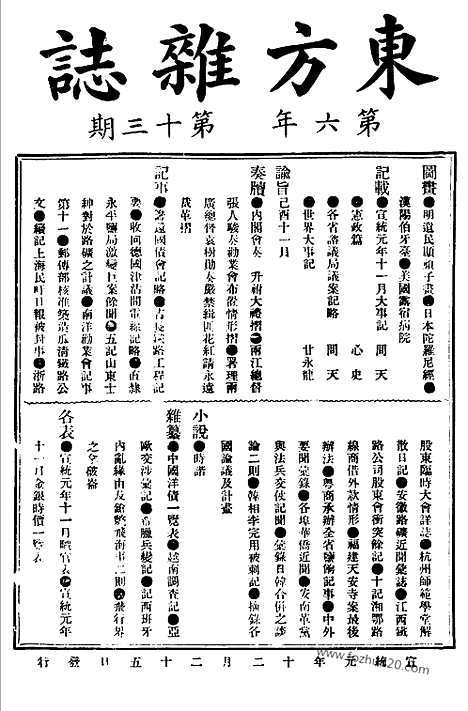 東方雜誌
第六年 第十三期
圖畫●明遺民順頑子畫●日本陀羅尼經●
漢陽伯牙臺●美國露宿病院
記載●宣統元年十一月大事記 問天
●憲政篇 心史
●各省諮議局議案記略 問天
●世界大事記 甘永龍
諭旨己酉十一月
奏牘●內閣會奏 升祔大禮摺●兩江總督
張人駿奏勸業會布置情形摺●署理兩
廣總督袁樹勛奏嚴禁緝匪花紅請永遠
裁革摺
記事●著遠國債會記略●吉長鐵路工程記
要●收回德國津沽間電線記略●直隸
永平鹽局激變巨案餘聞●五記山東士
紳對於路礦之計議●南洋勸業會記事
第十一●郵傳部核准築造瓜清鐵路公
文●續記上海民吁日報被封事●浙路
股東臨時大會詳誌●杭州師範學堂解
散日記●安徽路礦近聞彙誌●江西鐵
路公司股東會衝突餘記●十記湘鄂路
線商借外款情形●福建天安寺案最後
辦法●粵商承辦全省鹽餉記事●中外
要聞彙錄●各埠華僑近聞●安南革黨
與法兵交仗記聞●彙錄日韓合併之談
論二則●韓相李完用被刺記●摘錄各
國論議及計畫
小說●時諧
雜纂●中國洋債一覽表●越南調查記●亞
歐交涉彙記●希臘兵變記●記西班牙
內亂緣由友艙驚飛海事二則●飛行界
之夕破崙
各表●宣統元年十一月職官表●宣統元年
十一月金銀時價一覽表
宣統元年十二月二十五日發行
www.fozhu920.com